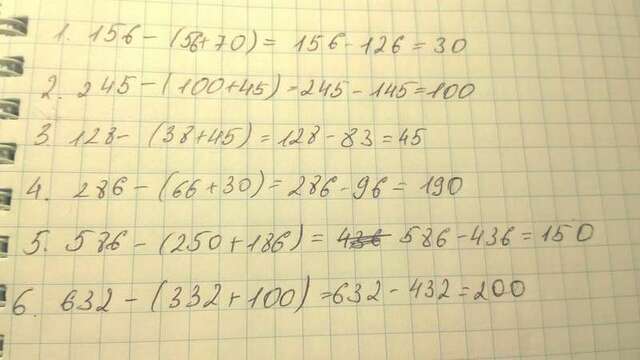 1. 156 - (56+70) = 156 - 126 = 30
2. 245 - (100+45) = 245 - 145 = 100
3. 128 - (38+45) = 128 - 83 = 45
4. 286 - (66+30) = 286 - 96 = 190
5. 586 - (250+186) = 586 - 436 = 150
6. 632 - (332+100) = 632 - 432 = 200